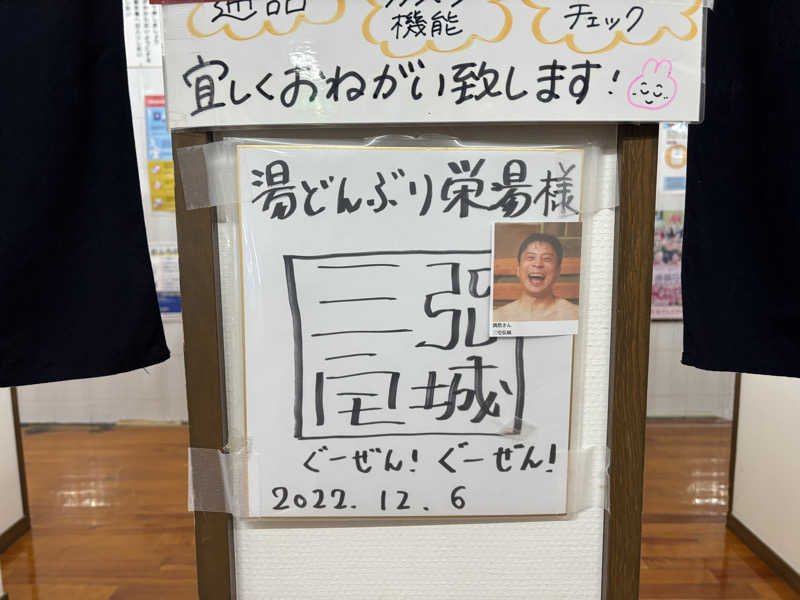 通話
機能
チェック
宜しくおねがい致します!
湯どんぶり栄湯様
三宅
弘城
偶然さん
三宅弘城
ぐーぜん! ぐーぜん!
2022.12.6